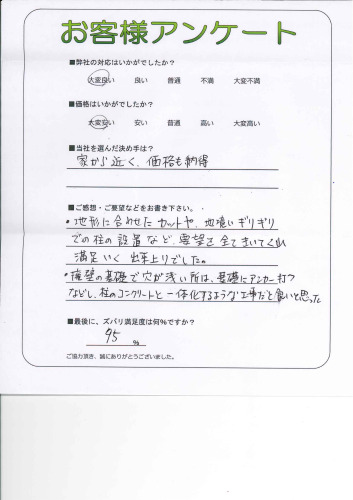 お客様アンケート
■弊社の対応はいかがでしたか?
大変良い 良い 普通 不満 大変不満
■価格はいかがでしたか?
大変安い 安い 普通 高い 大変高い
■当社を選んだ決め手は?
家から近く、価格も納得
■ご感想・ご要望などをお書き下さい。
・地形に合わせたカットや、地境いギリギリ
での柱の設置など、要望を全てきいてくれ
満足いく出来上りでした。
・擁壁の基礎で穴が浅い所は、基礎にアンカー打つ
などし、柱のコンクリートと一体化するような工事だと良いと思った
■最後に、ズバリ満足度は何%ですか?
95 %
ご協力頂き、誠にありがとうございました。